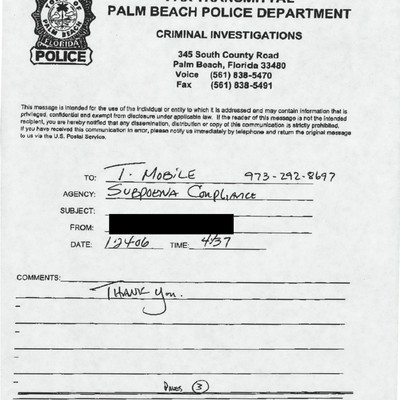 PALM BEACH POLICE DEPARTMENT
CRIMINAL INVESTIGATIONS
345 South County Road
Palm Beach, Florida 33480
Voice (561) 838-5470
Fax (561) 838-5491
PALM BEACH
FLORIDA
POLICE
This message is intended for the use of the individual or entity to which it is addressed and may contain information that is
privileged, confidential and exempt from disclosure under applicable law. If the reader of this message is not the intended
recipient, you are hereby notified that any dissemination, distribution or copy of this communication is strictly prohibited.
If you have received this communication in error, please notify us immediately by telephone and return the original message
to us via the U.S. Postal Service.
TO: T. MOBILE 973-292-8697
AGENCY: SUBPOENA COMPLIANCE
SUBJECT:
FROM:
DATE: 12406 TIME: 4:37
COMMENTS:
THANK YOU.
PAGES 3